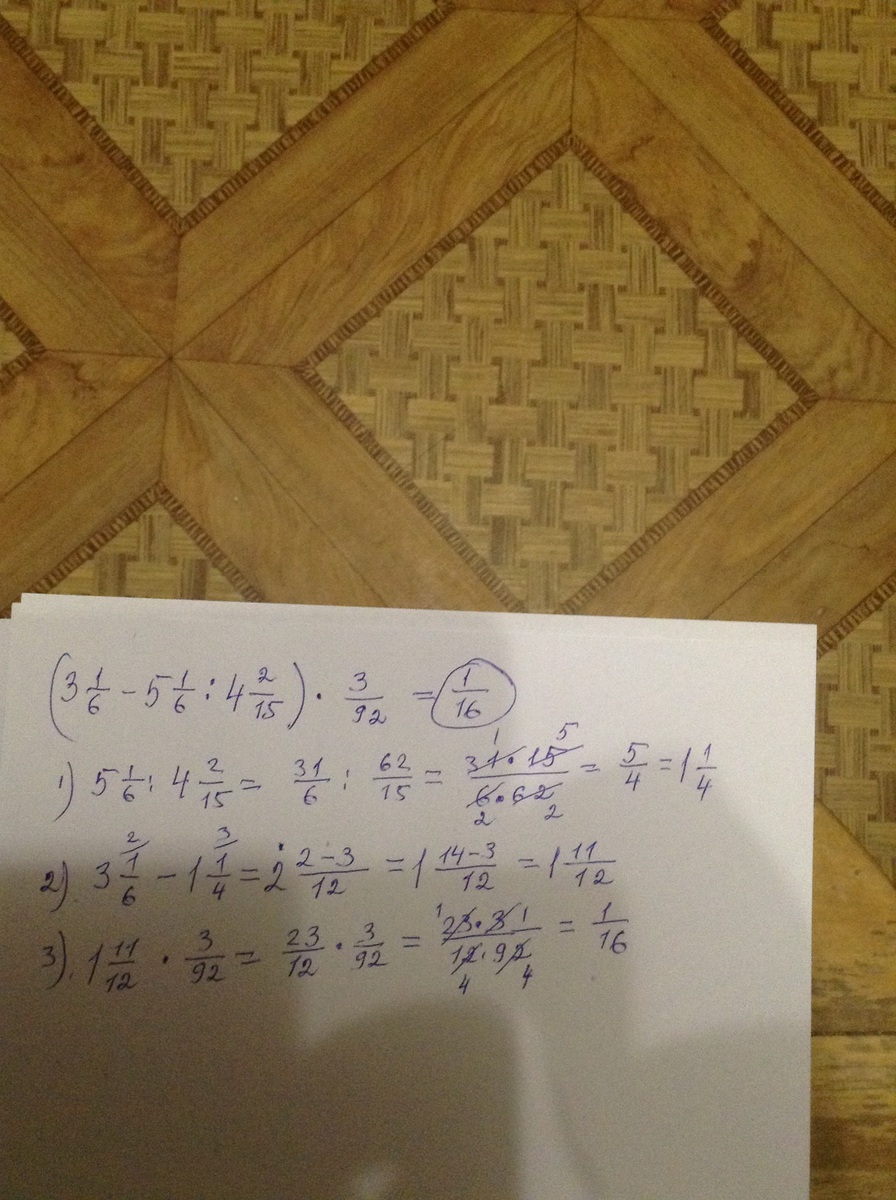 (3 1/6 - 5 1/6 : 4 2/15) · 3/92 = 1/16
1) 5 1/6 : 4 2/15 = 31/6 : 62/15 = 31·15/6·62 1 5 2 2 = 5/4 = 1 1/4
2). 3 1/6 2/ - 1 1/4 3/ = 2 2-3/12 = 1 14-3/12 = 1 11/12
3). 1 11/12 · 3/92 = 23/12 · 3/92 = 23·3/12·92 1 1 4 4 = 1/16